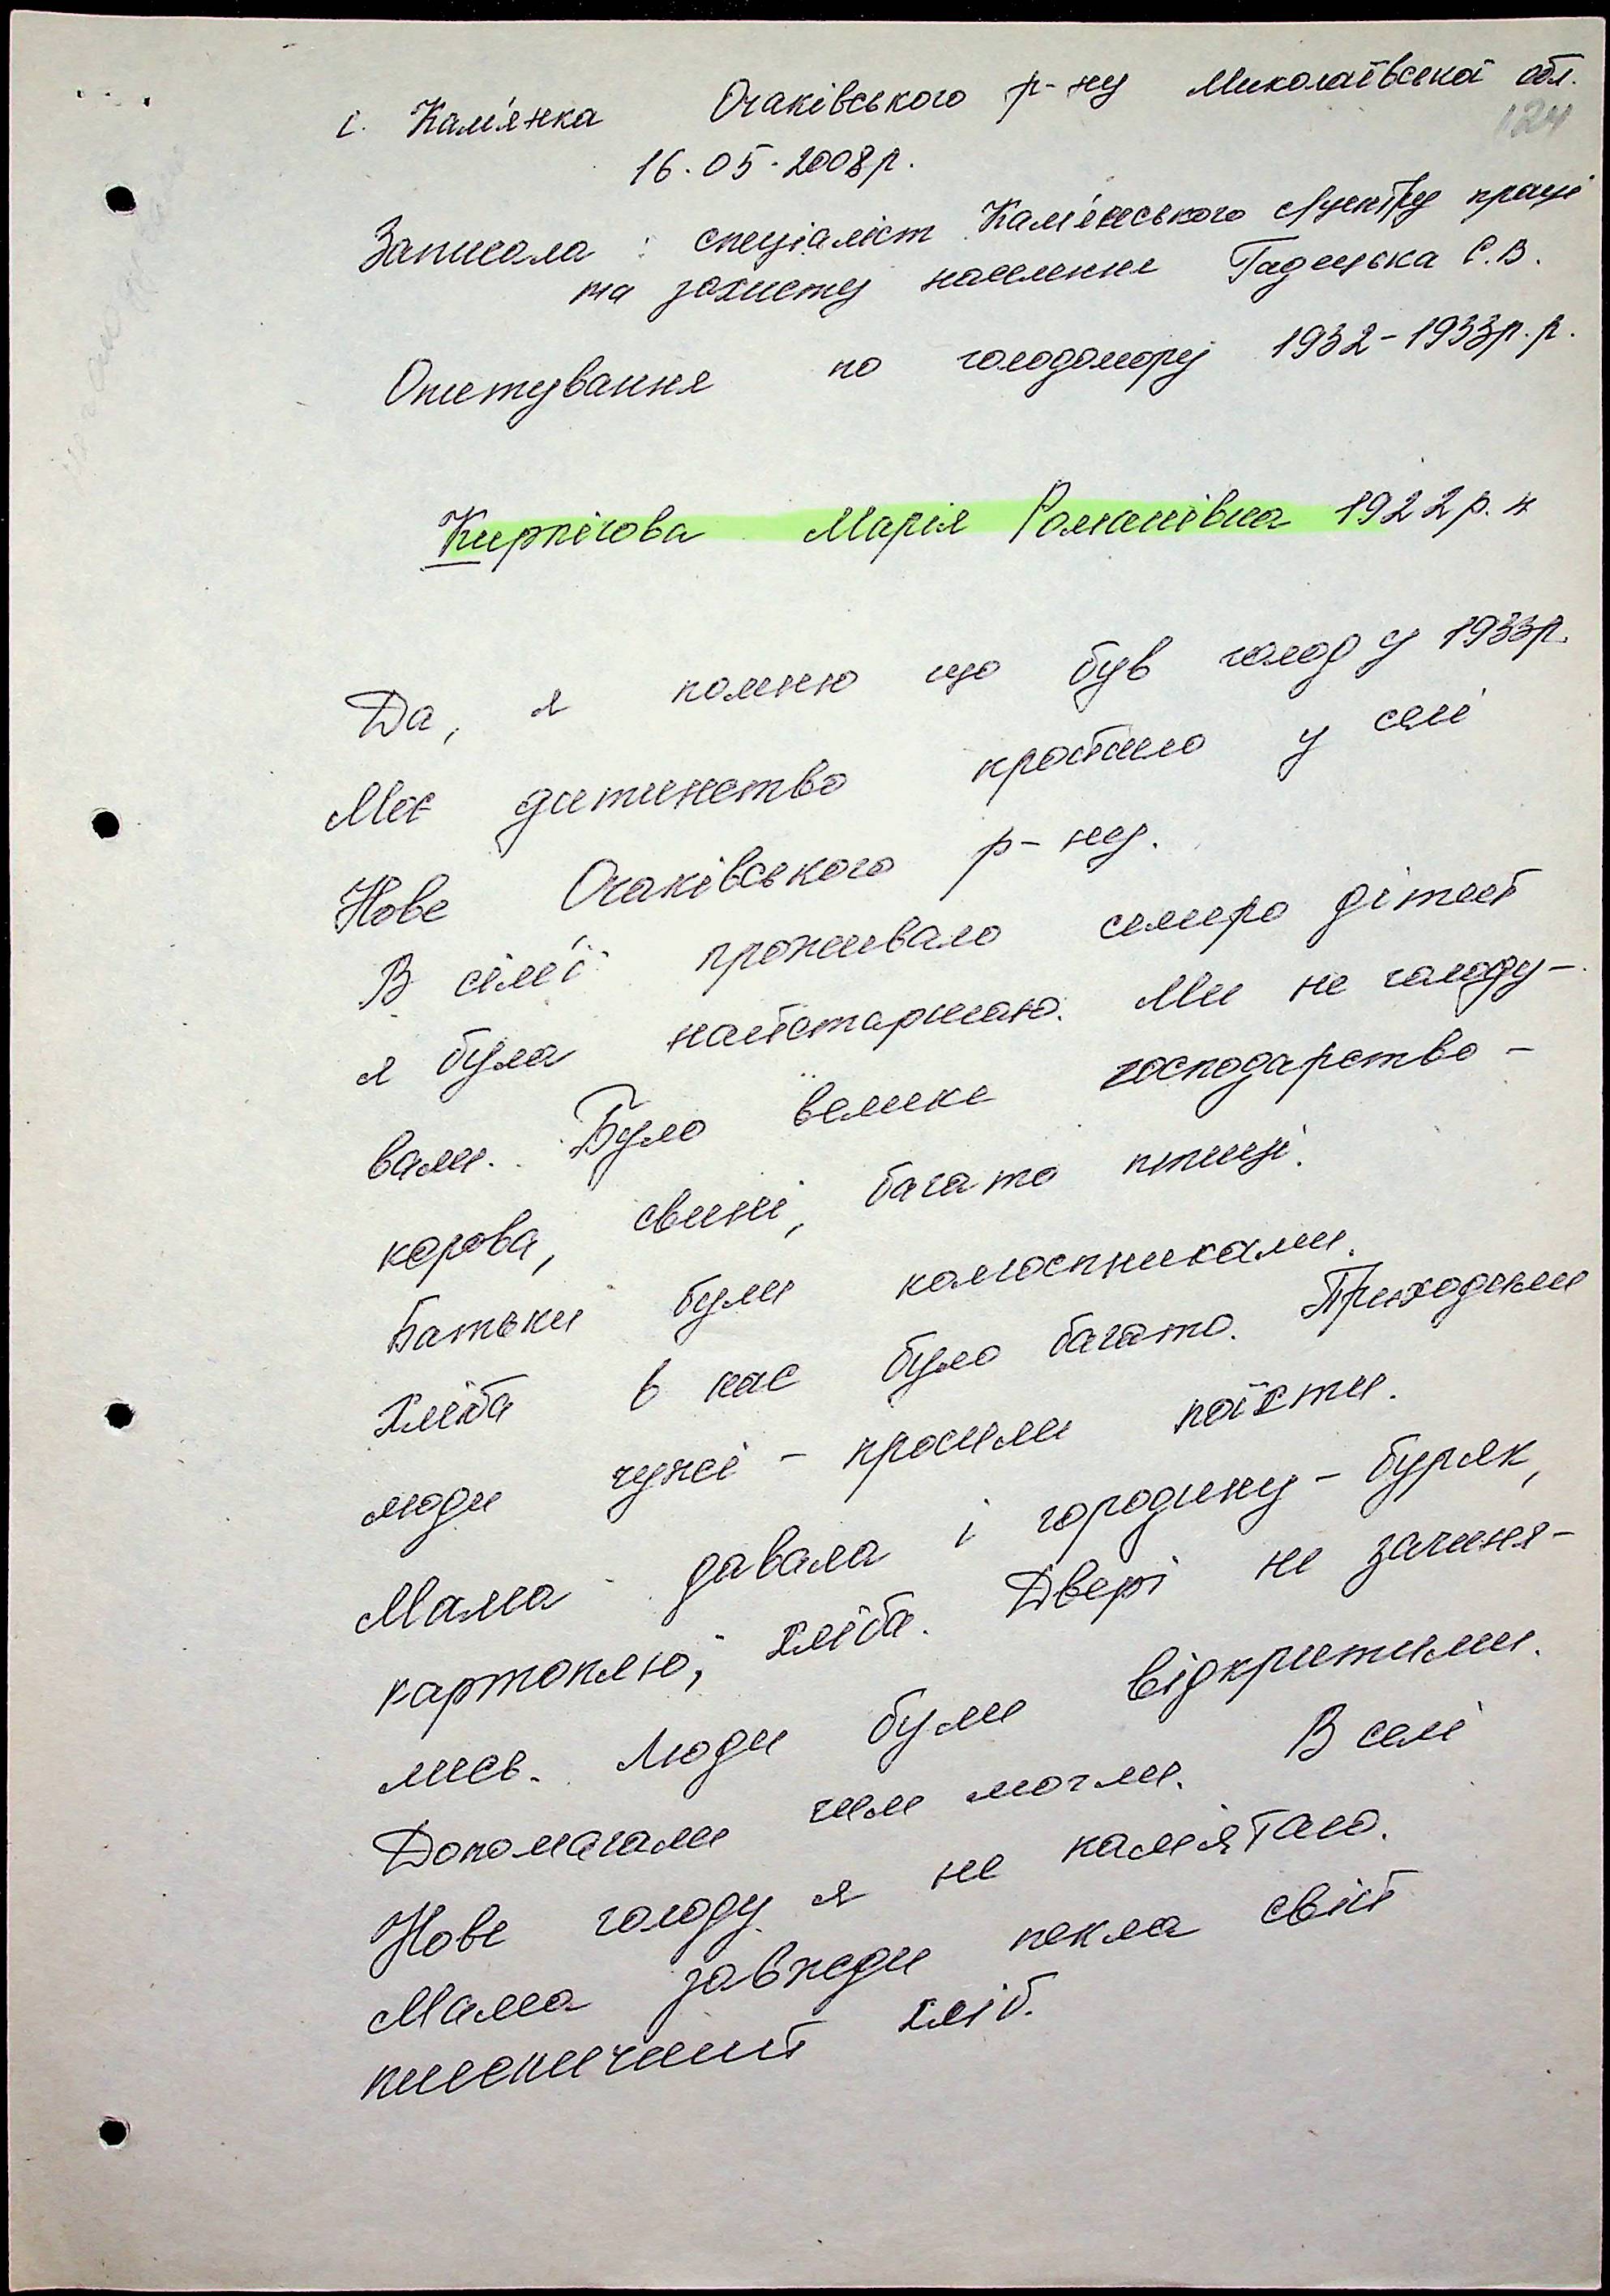 с. Кам'янка Очаківського р-ну Миколаївської обл.
124
16.05.2008р.
Записала: спеціаліст Кам'янського пункту праці
та захисту населення Гадецька С.В.
Опитування по голодомору 1932-1933р.р.
Кирпічова Марія Романівна 1922р.н
Да, я помню що був голод у 1933р.
Моє дитинство пройшло у селі
Нове Очаківського р-ну.
В сім'ї проживало семеро дітей
я була найстаршою. Ми не голоду-
вали. Було велике господарство -
корова, свині, багато птиці.
Батьки були колгоспниками.
Хліба в нас було багато. Приходили
люди чужі - просили поїсти.
Мама давала і городину - буряк,
картоплю, хліба. Двері не зачиня-
лись. Люди були відкритими.
Допомагали чим могли. В селі
Нове голоду я не пам'ятаю.
Мама завжди пекла свій
пшеничний хліб.